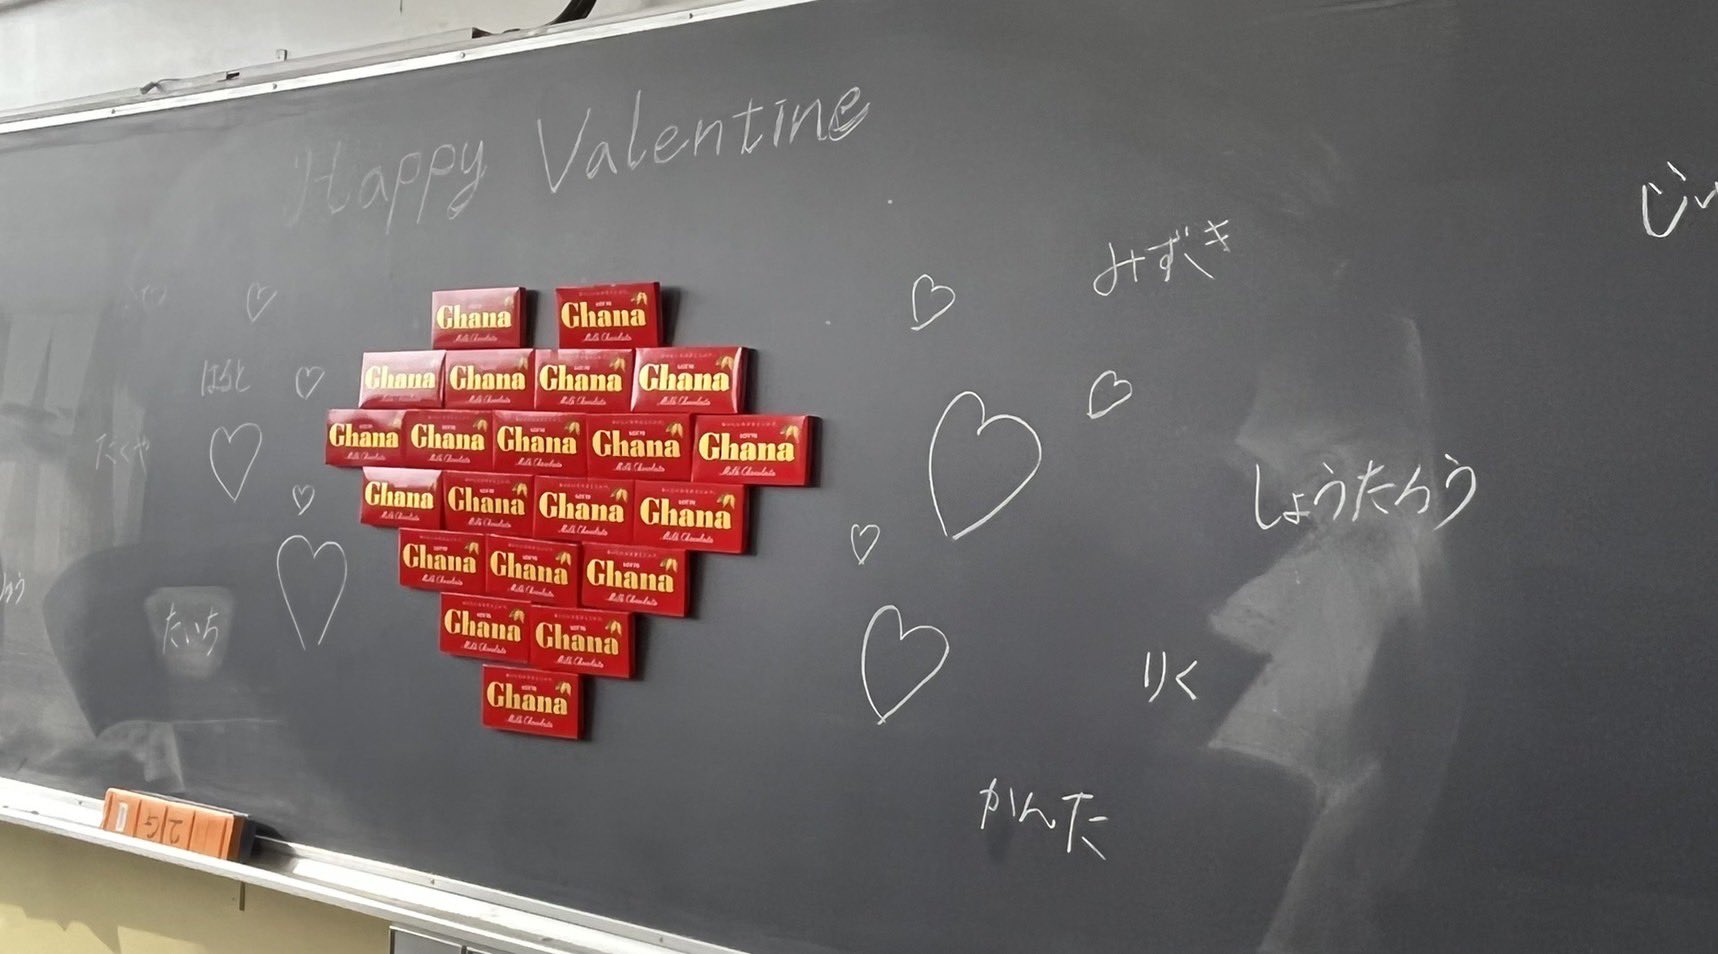 Happy Valentine
みずき
はると
たくや
しょうたろう
たいち
りく
かんた
Ghana Ghana
Ghana Ghana Ghana Ghana
Ghana Ghana Ghana Ghana Ghana
Ghana Ghana Ghana Ghana
Ghana Ghana Ghana
Ghana Ghana
Ghana
Milk Chocolate
LOTTE
2G